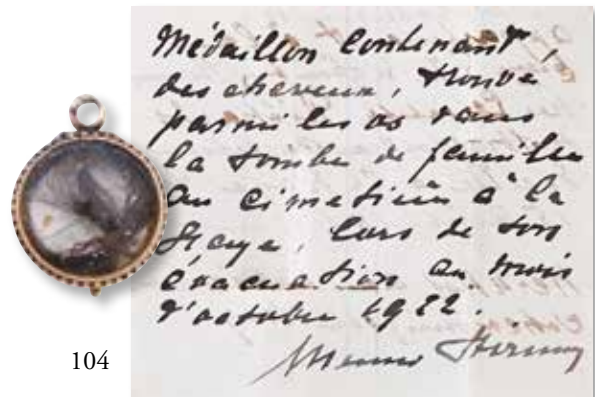 Médaillon contenant,
des cheveux, trouvé
parmi les os dans
la tombe de famille
au cimetière à la
Haye, lors de son
évacuation au mois
d'octobre 1922.
104